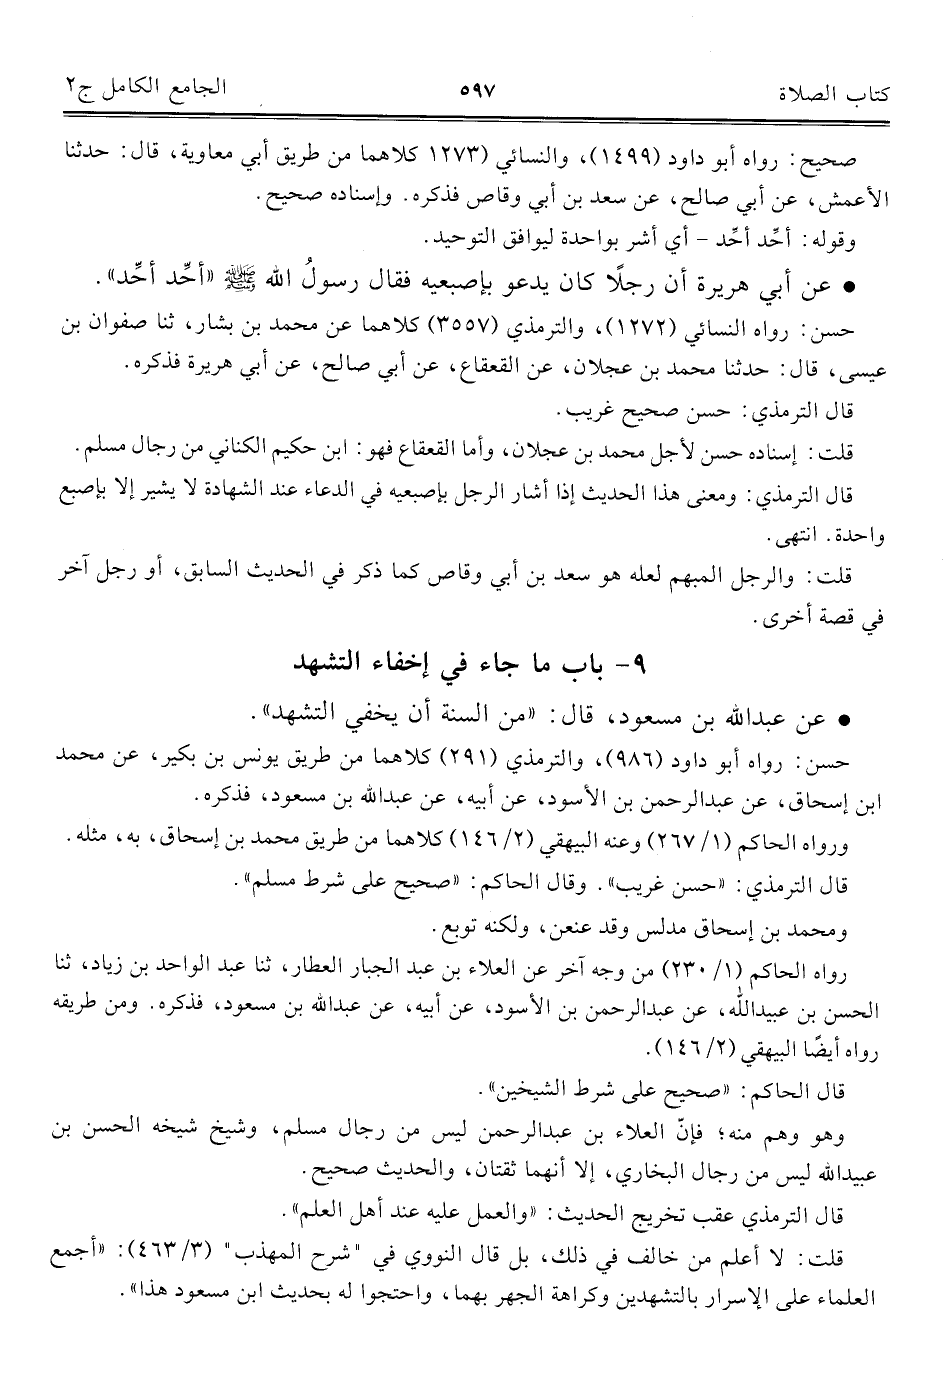 كتاب الصلاة ٥٩٧ الجامع الكامل ج٢
صحيح: رواه أبو داود (١٤٩٩)، والنسائي (١٢٧٣ كلاهما من طريق أبي معاوية، قال: حدثنا
الأعمش، عن أبي صالح، عن سعد بن أبي وقاص فذكره. وإسناده صحيح.
وقوله: أحِّد أحِّد - أي أشر بواحدة ليوافق التوحيد.
● عن أبي هريرة أن رجلًا كان يدعو بإصبعيه فقال رسولُ الله ﷺ «أحِّد أحِّد».
حسن: رواه النسائي (١٢٧٢)، والترمذي (٣٥٥٧) كلاهما عن محمد بن بشار، ثنا صفوان بن
عيسى، قال: حدثنا محمد بن عجلان، عن القعقاع، عن أبي صالح، عن أبي هريرة فذكره.
قال الترمذي: حسن صحيح غريب.
قلت: إسناده حسن لأجل محمد بن عجلان، وأما القعقاع فهو: ابن حكيم الكناني من رجال مسلم.
قال الترمذي: ومعنى هذا الحديث إذا أشار الرجل بإصبعيه في الدعاء عند الشهادة لا يشير إلا بإصبع
واحدة. انتهى.
قلت: والرجل المبهم لعله هو سعد بن أبي وقاص كما ذكر في الحديث السابق، أو رجل آخر
في قصة أخرى.
٩- باب ما جاء في إخفاء التشهد
● عن عبدالله بن مسعود، قال: «من السنة أن يخفي التشهد».
حسن: رواه أبو داود (٩٨٦)، والترمذي (٢٩١) كلاهما من طريق يونس بن بكير، عن محمد
ابن إسحاق، عن عبدالرحمن بن الأسود، عن أبيه، عن عبدالله بن مسعود، فذكره.
ورواه الحاكم (١/ ٢٦٧) وعنه البيهقي (٢/ ١٤٦) كلاهما من طريق محمد بن إسحاق، به، مثله.
قال الترمذي: «حسن غريب». وقال الحاكم: «صحيح على شرط مسلم».
ومحمد بن إسحاق مدلس وقد عنعن، ولكنه توبع.
رواه الحاكم (١/ ٢٣٠) من وجه آخر عن العلاء بن عبد الجبار العطار، ثنا عبد الواحد بن زياد، ثنا
الحسن بن عبيدالله، عن عبدالرحمن بن الأسود، عن أبيه، عن عبدالله بن مسعود، فذكره. ومن طريقه
رواه أيضًا البيهقي (٢/ ١٤٦).
قال الحاكم: «صحيح على شرط الشيخين».
وهو وهم منه؛ فإنّ العلاء بن عبدالرحمن ليس من رجال مسلم، وشيخ شيخه الحسن بن
عبيدالله ليس من رجال البخاري، إلا أنهما ثقتان، والحديث صحيح.
قال الترمذي عقب تخريج الحديث: «والعمل عليه عند أهل العلم».
قلت: لا أعلم من خالف في ذلك، بل قال النووي في "شرح المهذب" (٣/ ٤٦٣): «أجمع
العلماء على الإسرار بالتشهدين وكراهة الجهر بهما، واحتجوا له بحديث ابن مسعود هذا».